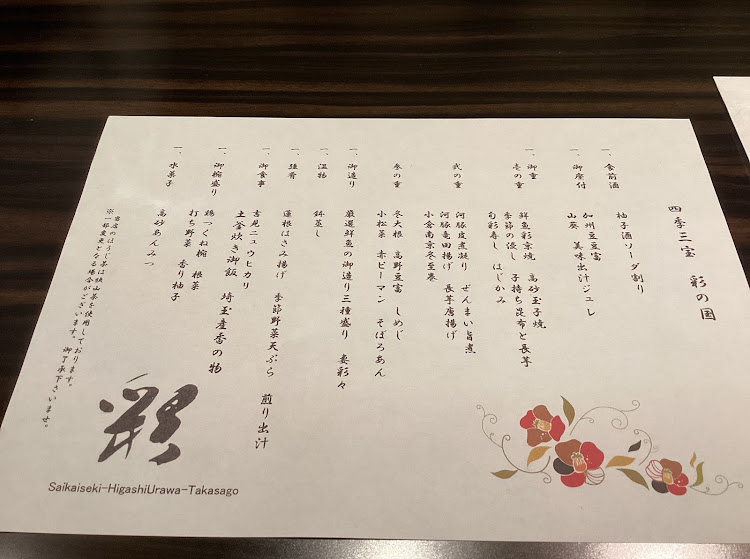 四季三宝 彩の国
一、食前酒
柚子酒ソーダ割り
一、御座付
加州豆豆富 美味出汁ジュレ
山葵
一、御重
壱の重
鮮魚彩京焼 高砂玉子焼
季節の浸し 子持ち昆布と長芋
旬彩寿し はじかみ
弐の重
河豚皮煮凝り ぜんまい旨煮
河豚竜田揚げ 長芋唐揚げ
小倉南京冬至巻
参の重
冬大根 高野豆富 しめじ
小松菜 赤ピーマン そぼろあん
一、御造り
厳選鮮魚の御造り三種盛り 妻彩々
一、温物
鉢蒸し
一、強肴
蓮根はさみ揚げ 季節野菜天ぷら 煎り出汁
一、御食事
吉見ニュウヒカリ
土釜炊き御飯 埼玉産香の物
一、御椀盛り
鶏つくね椀 根菜
打ち野菜 香り柚子
一、水菓子
高砂あんみつ
※当店のほうじ茶は狭山茶を使用しております。
※一部変更となる場合がございます。御了承下さいませ。
彩
Saikaiseki-HigashiUrawa-Takasago